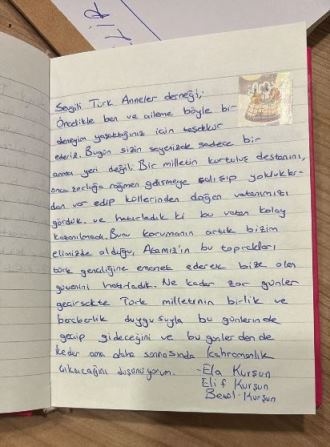 Sevgili Türk Anneler derneği,
Öncelikle ben ve aileme böyle bir
deneyim yaşattığınız için teşekkür
ederiz. Bugün sizin sayenizde sadece bir
anma yeri değil. Bir milletin kurtuluş destanını,
onca zorluğa rağmen gelişmeye çalışıp yokluk-
dan var edip küllerinden doğan vatanımızı
gördük. ve hatırladık ki bu vatan kolay
kazanılmadı. Bunu korumanın artık bizim
elimizde olduğu, Atamız'ın bu toprakları
türk gençliğine emanet ederek bize olan
güvenini hatırladık. Ne kadar zor günler
geçirsekte Türk milletinin birlik ve
berberlik duygusuyla bu günlerinde
geçip gideceğini ve bu günlerden de
kadar ama daha sonrasında kahramanlık
çıkacağını düşünüyorum.
-Ela Kurşun
Elif Kurşun
Kurşun